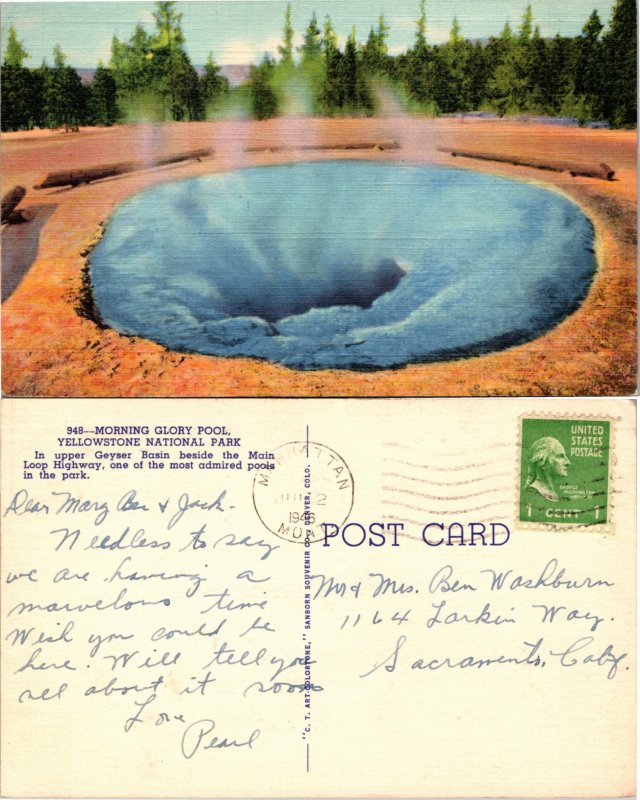 948--MORNING GLORY POOL,
YELLOWSTONE NATIONAL PARK
In upper Geyser Basin beside the Main
Loop Highway, one of the most admired pools
in the park.
Dear Mary Bea & Jack.
Needless to say
we are having a
marvelous time
Wish you could be
here. Will tell you
all about it soon
Love
Pearl
"C. T. ART-COLORTONE," SANBORN SOUVENIR CO., DENVER, COLO.
MANHATTAN
2
194
MO
POST CARD
UNITED
STATES
POSTAGE
GEORGE
WASHINGTON
1 CENT 1
Mr & Mrs. Ben Washburn
1164 Larkin Way.
Sacramento, Calif.